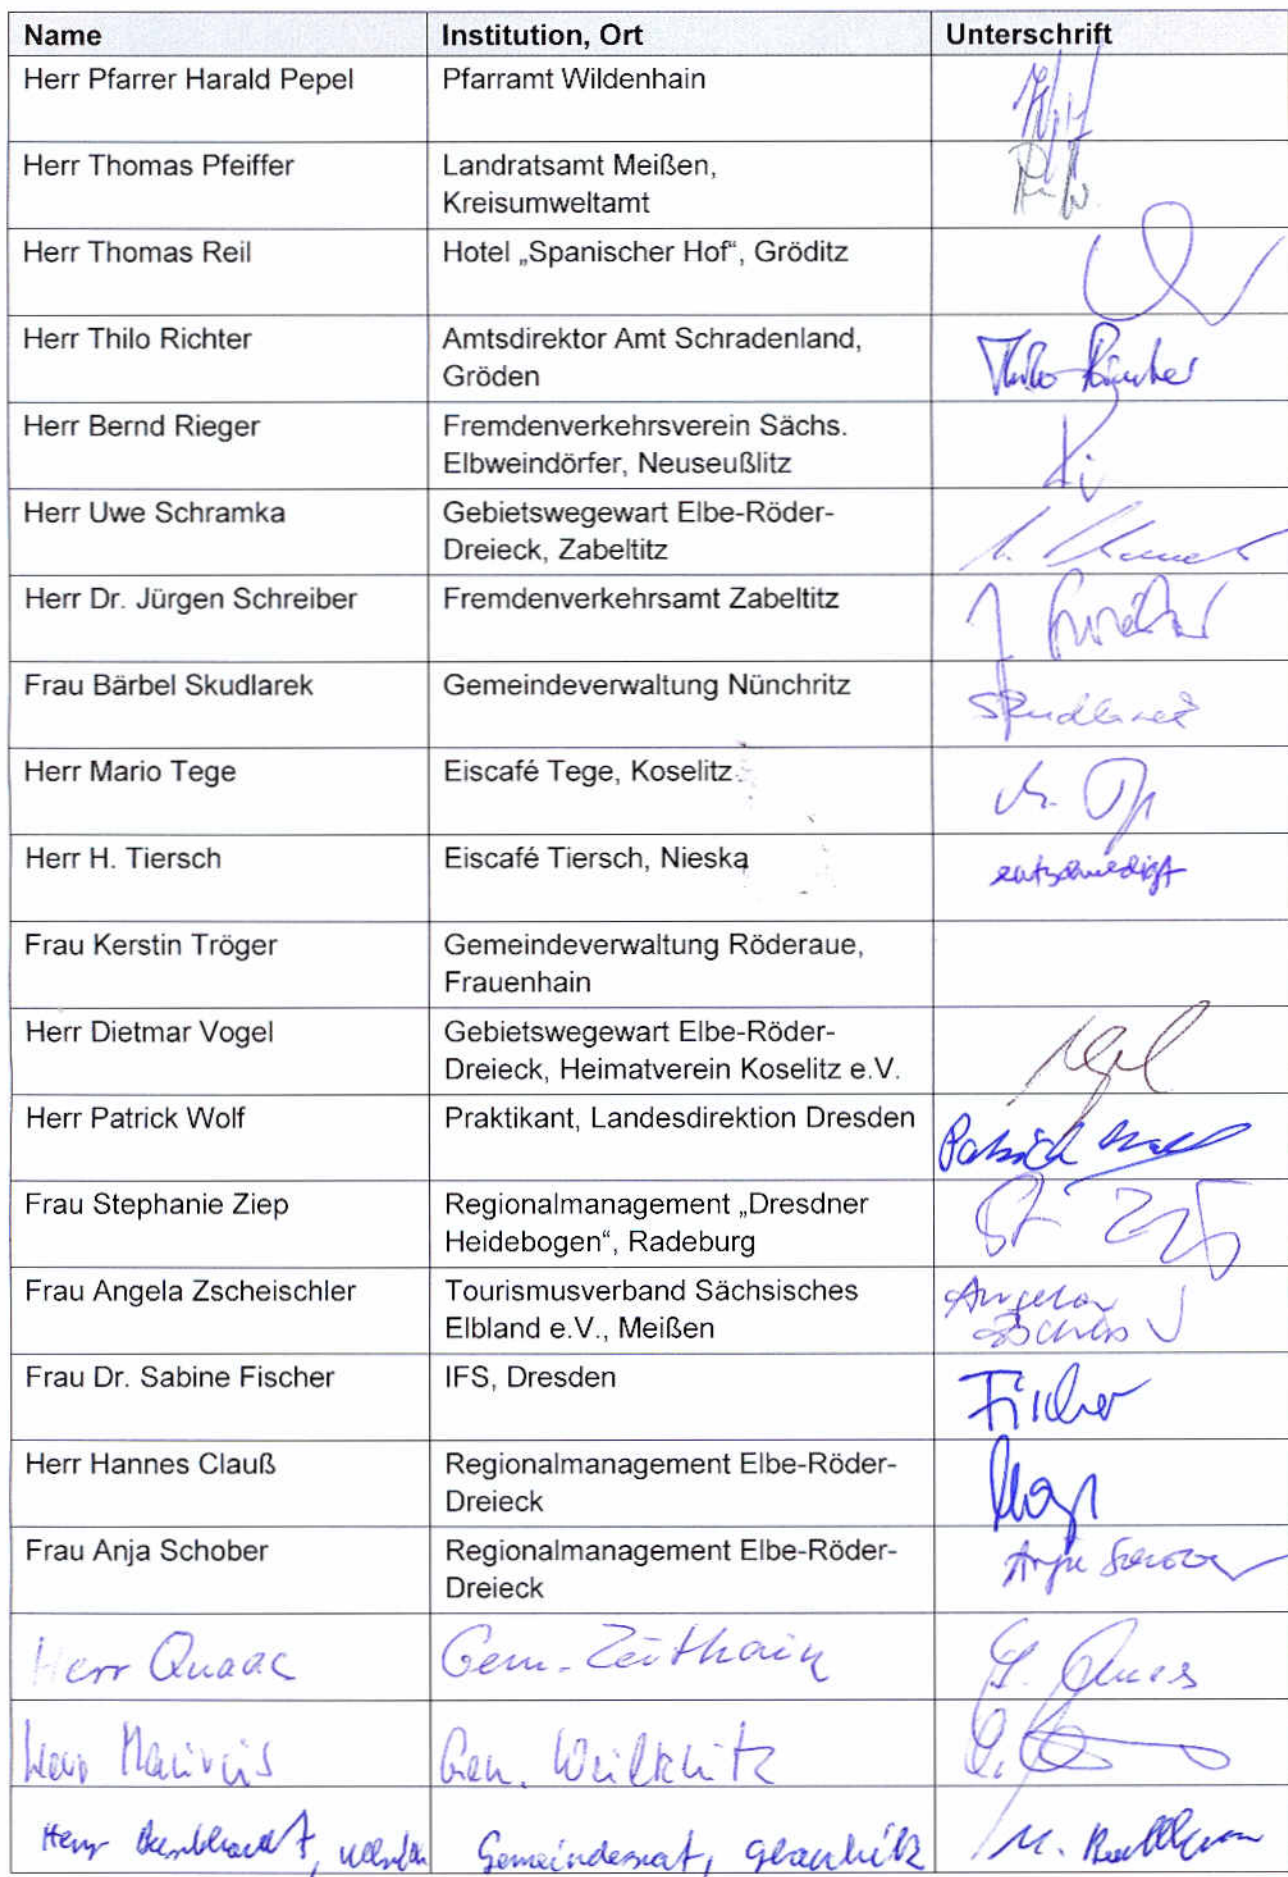 Name Institution, Ort Unterschrift
Herr Pfarrer Harald Pepel Pfarramt Wildenhain
Herr Thomas Pfeiffer Landratsamt Meißen,
Kreisumweltamt
Herr Thomas Reil Hotel „Spanischer Hof“, Gröditz
Herr Thilo Richter Amtsdirektor Amt Schradenland,
Gröden
Thilo Richter
Herr Bernd Rieger Fremdenverkehrsverein Sächs.
Elbweindörfer, Neuseußlitz
Herr Uwe Schramka Gebietswegewart Elbe-Röder-
Dreieck, Zabeltitz
Herr Dr. Jürgen Schreiber Fremdenverkehrsamt Zabeltitz
Frau Bärbel Skudlarek Gemeindeverwaltung Nünchritz
Skudlarek
Herr Mario Tege Eiscafé Tege, Koselitz
Herr H. Tiersch Eiscafé Tiersch, Nieska
entschuldigt
Frau Kerstin Tröger Gemeindeverwaltung Röderaue,
Frauenhain
Herr Dietmar Vogel Gebietswegewart Elbe-Röder-
Dreieck, Heimatverein Koselitz e.V.
Herr Patrick Wolf Praktikant, Landesdirektion Dresden
Patrick Wolf
Frau Stephanie Ziep Regionalmanagement „Dresdner
Heidebogen“, Radeburg
Frau Angela Zscheischler Tourismusverband Sächsisches
Elbland e.V., Meißen
Angela
Frau Dr. Sabine Fischer IFS, Dresden
Fischer
Herr Hannes Clauß Regionalmanagement Elbe-Röder-
Dreieck
Frau Anja Schober Regionalmanagement Elbe-Röder-
Dreieck
Anja Schober
Herr Quaas Gem. Zeithain
Herr Gem.
Herr Gemeinderat, Glaubitz